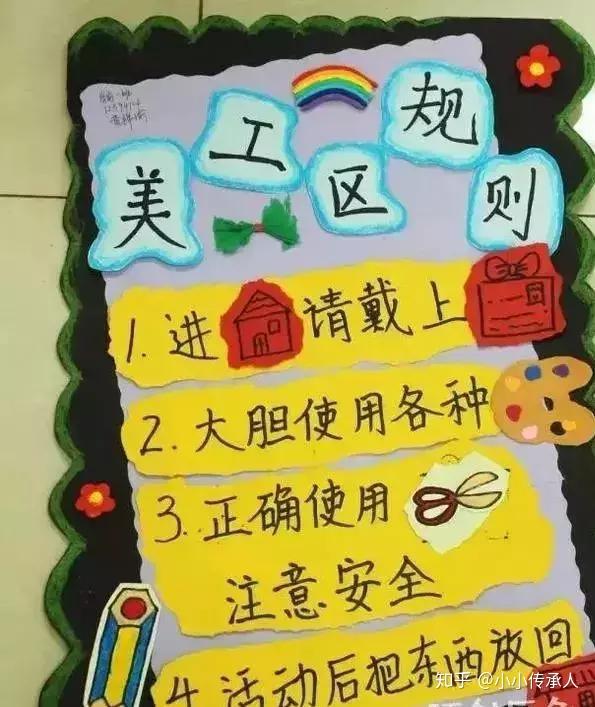 美工区规则
1.进请戴上
2.大胆使用各种
3.正确使用
注意安全
4.活动后把东西放回
知乎 @小小传承人